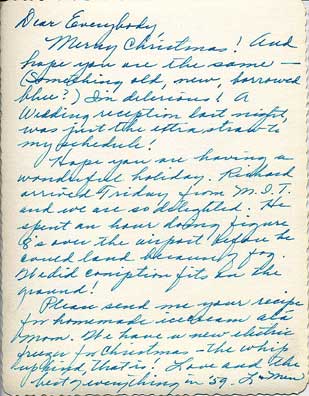 Dear Everybody
Merry Christmas! And
hope you are the same —
(Something old, new, borrowed
blue?) I'm delirious! A
Wedding reception last night,
was just the extra straw to
my schedule!
Hope you are having a
wonderful holiday. Richard
arrived Friday from M.I.T.
and we are so delighted. He
spent an hour doing figure
8's over the airport before he
could land because fog.
We did coniption fits on the
ground!
Please send me your recipe
for homemade icecream
Mom. We have a new electric
freezer for Christmas – the whip
up kind, that is. Love and the
best of everything in '59.